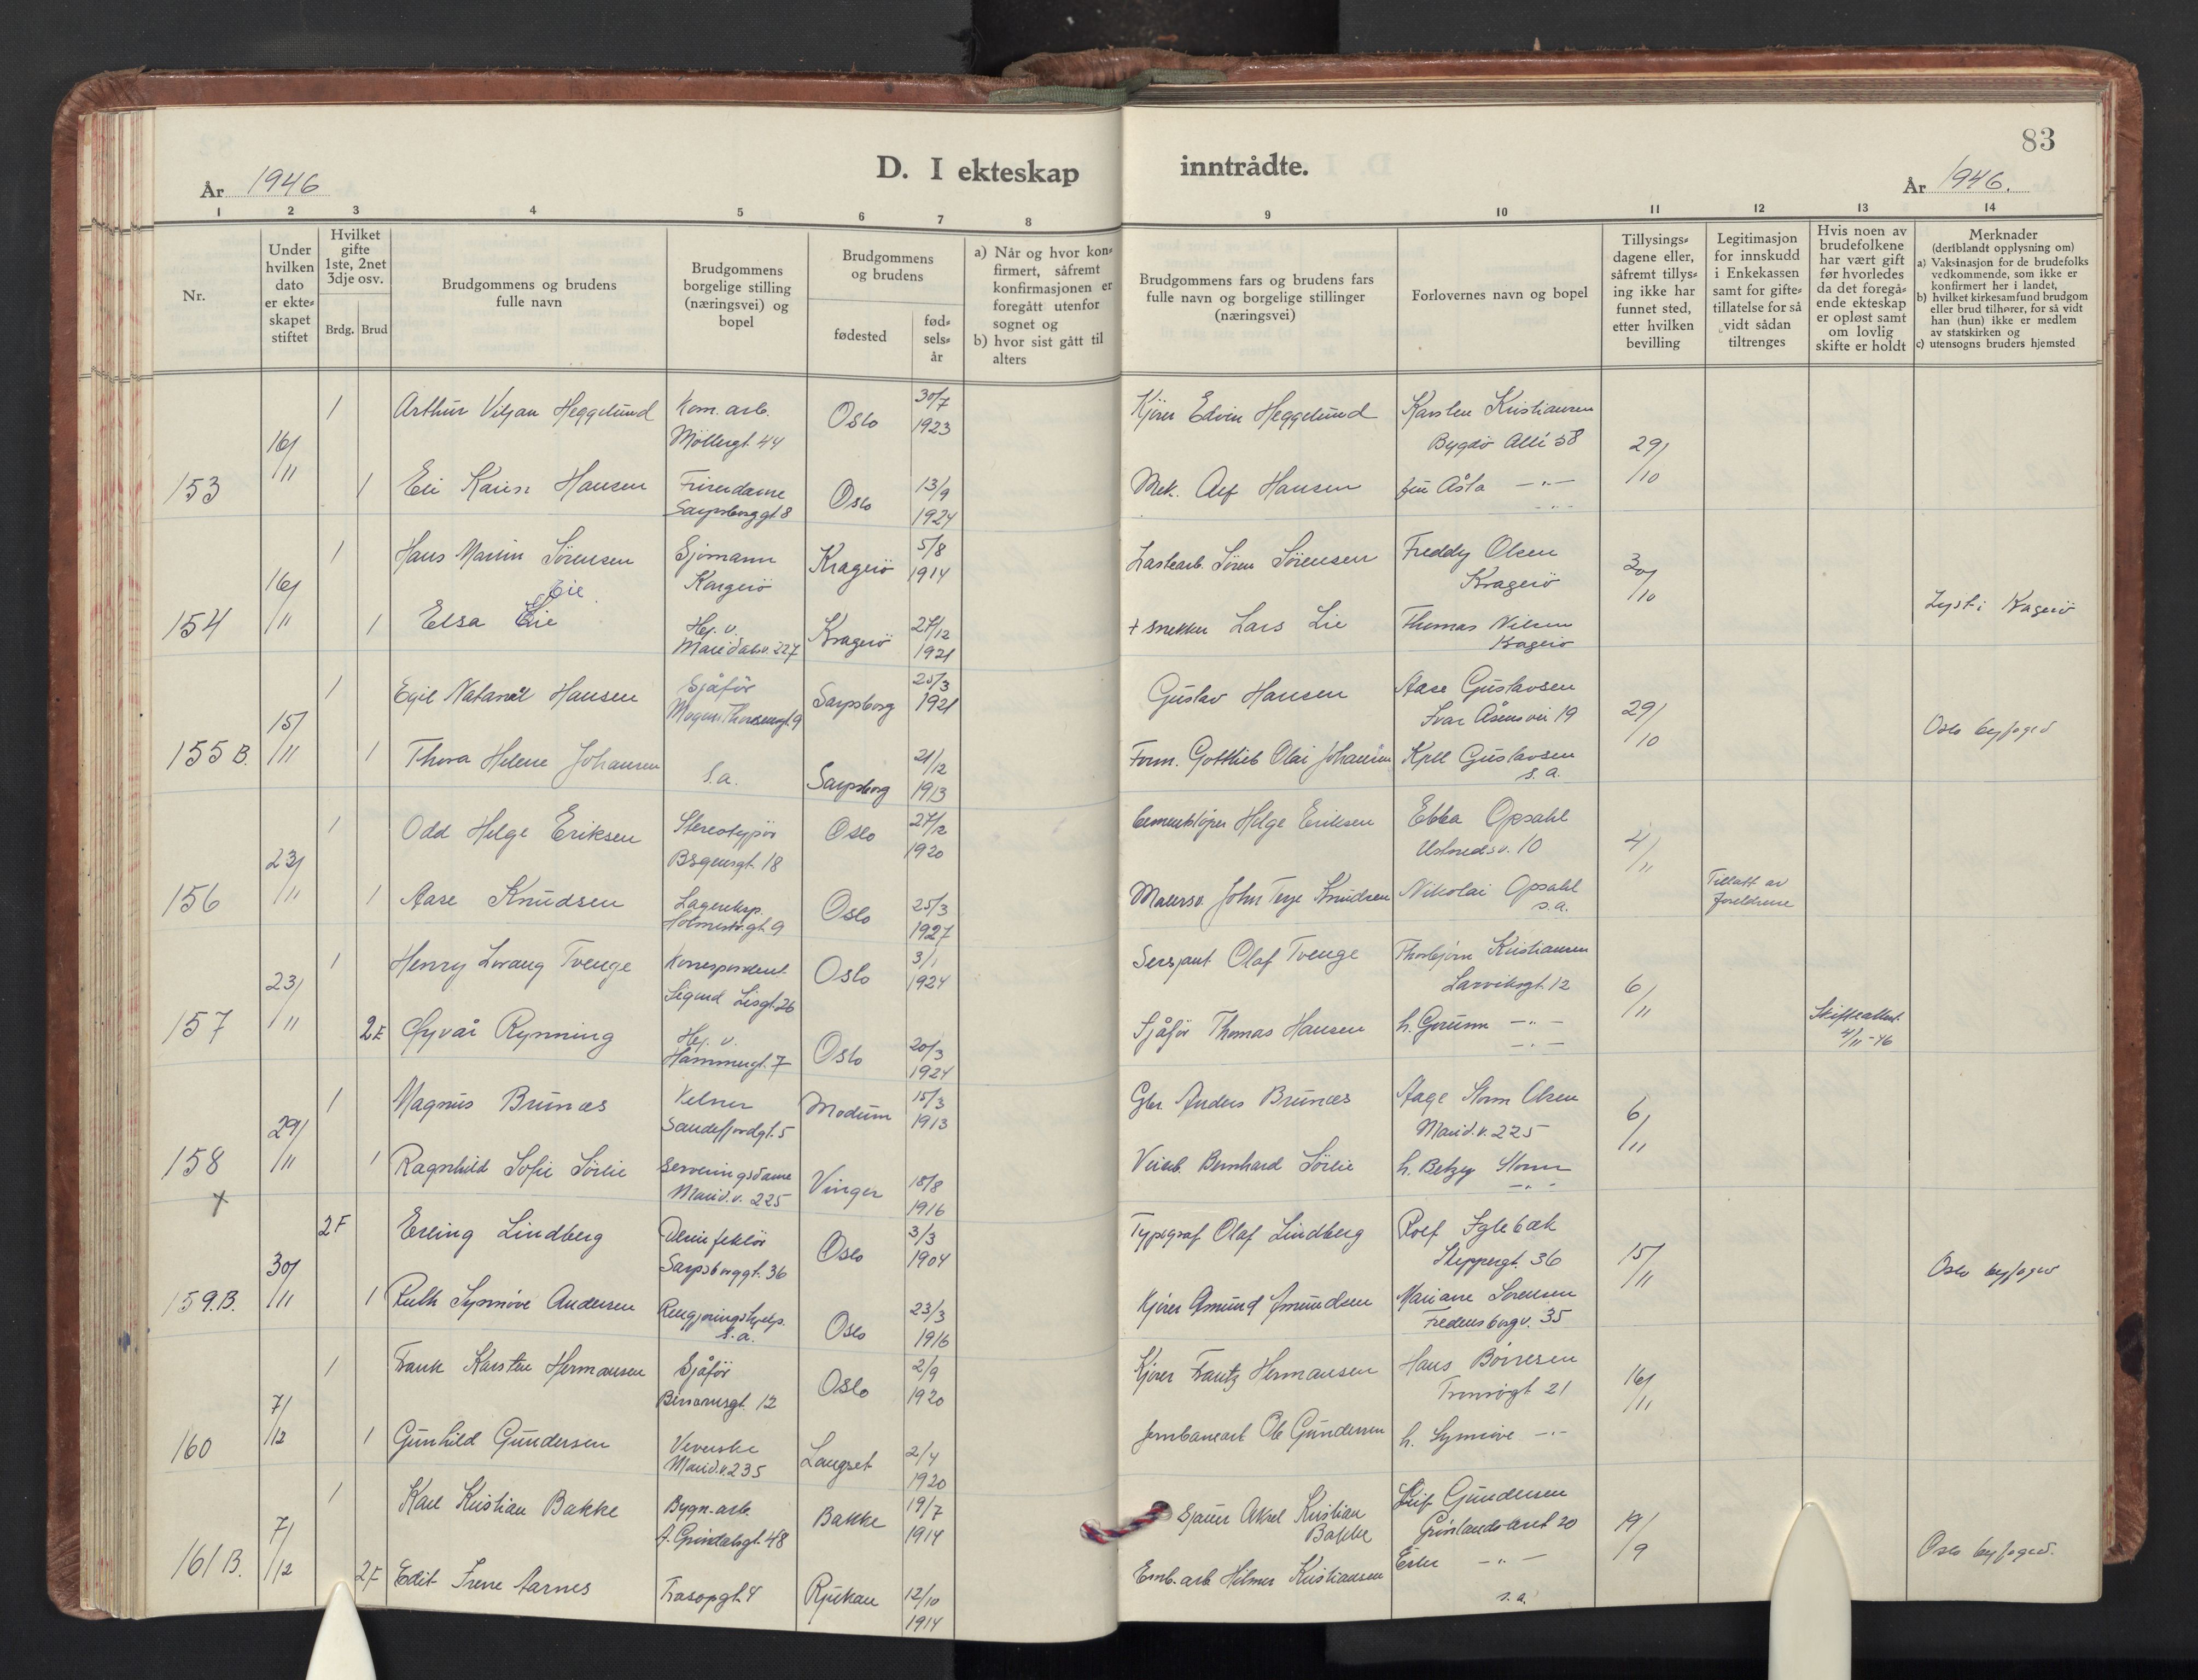 83
D. I ekteskap inntrådte.
År 1946
År 1946.
1 2 3 4 5 6 7 8 9 10 11 12 13 14
Nr.
Under
hvilken
dato
er ekte-
skapet
stiftet
Hvilket
gifte
1ste, 2net
3dje osv.
Brdg. Brud
Brudgommens og brudens
fulle navn
Brudgommens
borgelige stilling
(næringsvei) og
bopel
Brudgommens
og brudens
fødested
fød-
sels-
år
a) Når og hvor kon-
firmert, såfremt
konfirmasjonen er
foregått utenfor
sognet og
b) hvor sist gått til
alters
Brudgommens fars og brudens fars
fulle navn og borgelige stillinger
(næringsvei)
Forlovernes navn og bopel
Tillysings-
dagene eller,
såfremt tillys-
ing ikke har
funnet sted,
etter hvilken
bevilling
Legitimasjon
for innskudd
i Enkekassen
samt for gifte-
tillatelse for så
vidt sådan
tiltrenges
Hvis noen av
brudefolkene
har vært gift
før hvorledes
da det foregå-
ende ekteskap
er opløst samt
om lovlig
skifte er holdt
Merknader
(deriblandt opplysning om)
a) Vaksinasjon for de brudefolks
vedkommende, som ikke er
konfirmert her i landet,
b) hvilket kirkesamfund brudgom
eller brud tilhører, for så vidt
han (hun) ikke er medlem
av statskirken og
c) utensogns bruders hjemsted
153 16/11
1 Arthur Viljan Heggelund Kom. arb. Møllergt. 44 Oslo 30/7 1923 Kjører Edvin Heggelund Karsten Kristiansen Bygdø Allé 58 29/10
1 Eli Karin Hansen Frisørdame Sarpsborggt. 8 Oslo 13/9 1924 Mek. Alf Hansen fru Åsta —"—
154 16/11
1 Hans Martin Sørensen Sjømann Kragerø Kragerø 5/8 1914 Lastearb. Søren Sørensen Freddy Olsen Kragerø 30/10
Lie
1 Elsa Lie Hj. v. Maridalsv. 227 Kragerø 27/12 1921 + snekker Lars Lie Thomas Nilsen Kragerø Lyst i Kragerø
155 B. 15/11
1 Egil Natanæl Hansen Sjåfør Mogens Thorsensgt. 9 Sarpsborg 25/3 1921 Gustav Hansen Aase Gustavsen Ivar Åsens vei 19 29/10
1 Thora Helene Johansen s.a. Sarpsborg 21/12 1913 Form. Gottlieb Olai Johansen Kjell Gustavsen s.a. Oslo byfoged
156 23/11
1 Odd Helge Eriksen Stereotypør Bergensgt. 18 Oslo 27/2 1920 Cementstøper Helge Eriksen Ebba Opsahl Ustmedsv. 10 4/11
1 Aase Knudsen Lagereksp. Holmestr.gt. 9 Oslo 25/3 1927 Malersv. John Terje Knudsen Nikolai Opsahl s.a. Tillatt av foreldrene
157 23/11
1 Henry Lorang Tvenge Korrespondent Oslo 3/1 1924 Sersjant Olaf Tvenge Thorbjørn Kristiansen Larviksgt. 12 6/11
2 F Øyvår Rynning Hj. v. Hammergt. 7 Oslo 20/3 1924 Sjåfør Thomas Hansen h. Gorunn —"— Skifteattest 4/11-46
158 29/11
1 Magnus Brunæs Kelner Sandefjordgt. 5 Modum 15/3 1913 Gbr. Anders Brunæs Aage Storm Olsen Marid.v. 225 6/11
1 Ragnhild Sofie Sørlie Serveringsdame Marid.v. 225 Vinger 18/8 1916 Veiarb. Bernhard Sørlie h. Betzy Storm —"—
x
159.B. 30/11
2 F Erling Lindberg Desinfektør Sarpsborggt. 36 Oslo 3/3 1904 Typograf Olaf Lindberg Rolf Iglebæk Steppergt. 36 15/11
1 Ruth Synnøve Andersen Rengjøringshjelp. s.a. Oslo 23/3 1916 Kjører Amund Amundsen Mariane Sørensen Fredensborgv. 35 Oslo byfoged
160 7/12
1 Frank Karsten Hermansen Sjåfør 12 Oslo 2/9 1920 Kjører Frantz Hermansen Hans Børresen Tromsøgt. 21 16/11
1 Gunhild Gundersen Veverske Marid.v. 235 Langset 2/4 1920 Jernbanearb. Ole Gundersen h. Synnøve —"—
161 B. 7/12
1 Karl Kristian Bakke Bygn.arb. A. Grindalsgt. 48 Bakke 19/7 1914 Sjauer Aksel Kristian Bakke Leif Gundersen 20 19/9
2 F Edit Irene Aarnes Frasopgt. 4 Rjukan 12/10 1914 Emb.arb. Hilmer Kristiansen Ester —"— s.a. Oslo byfoged.